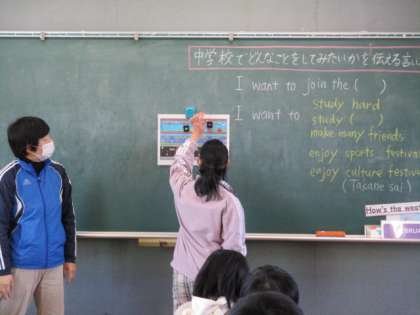 中学校でどんなことをしてみたいかを伝える言い
I want to join the (    )
I want to study hard
study (    )
make many friends
enjoy sports festival
enjoy culture festiva
(Tasane sai)
How's the wea
BRU